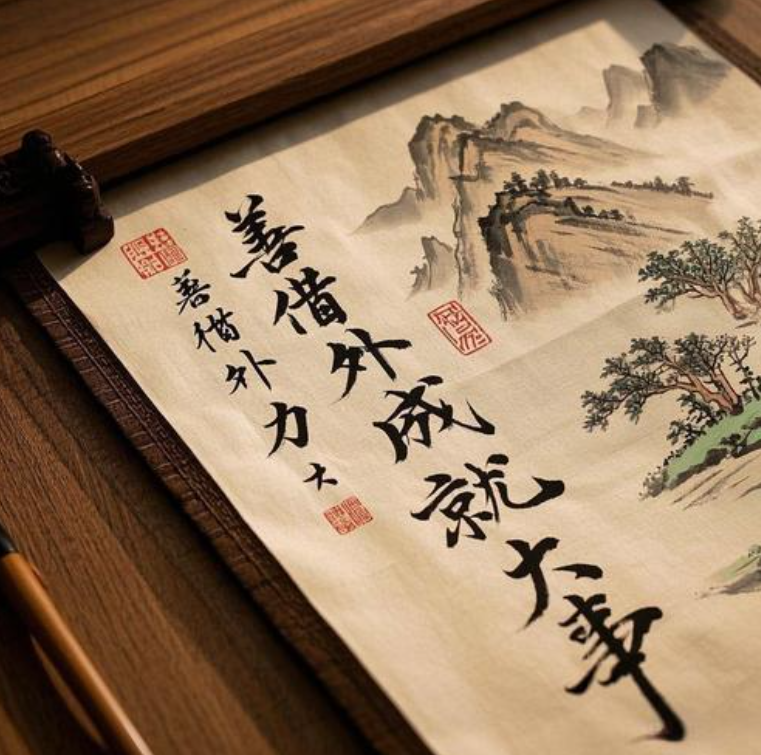 善借外成就大事
善借外力大